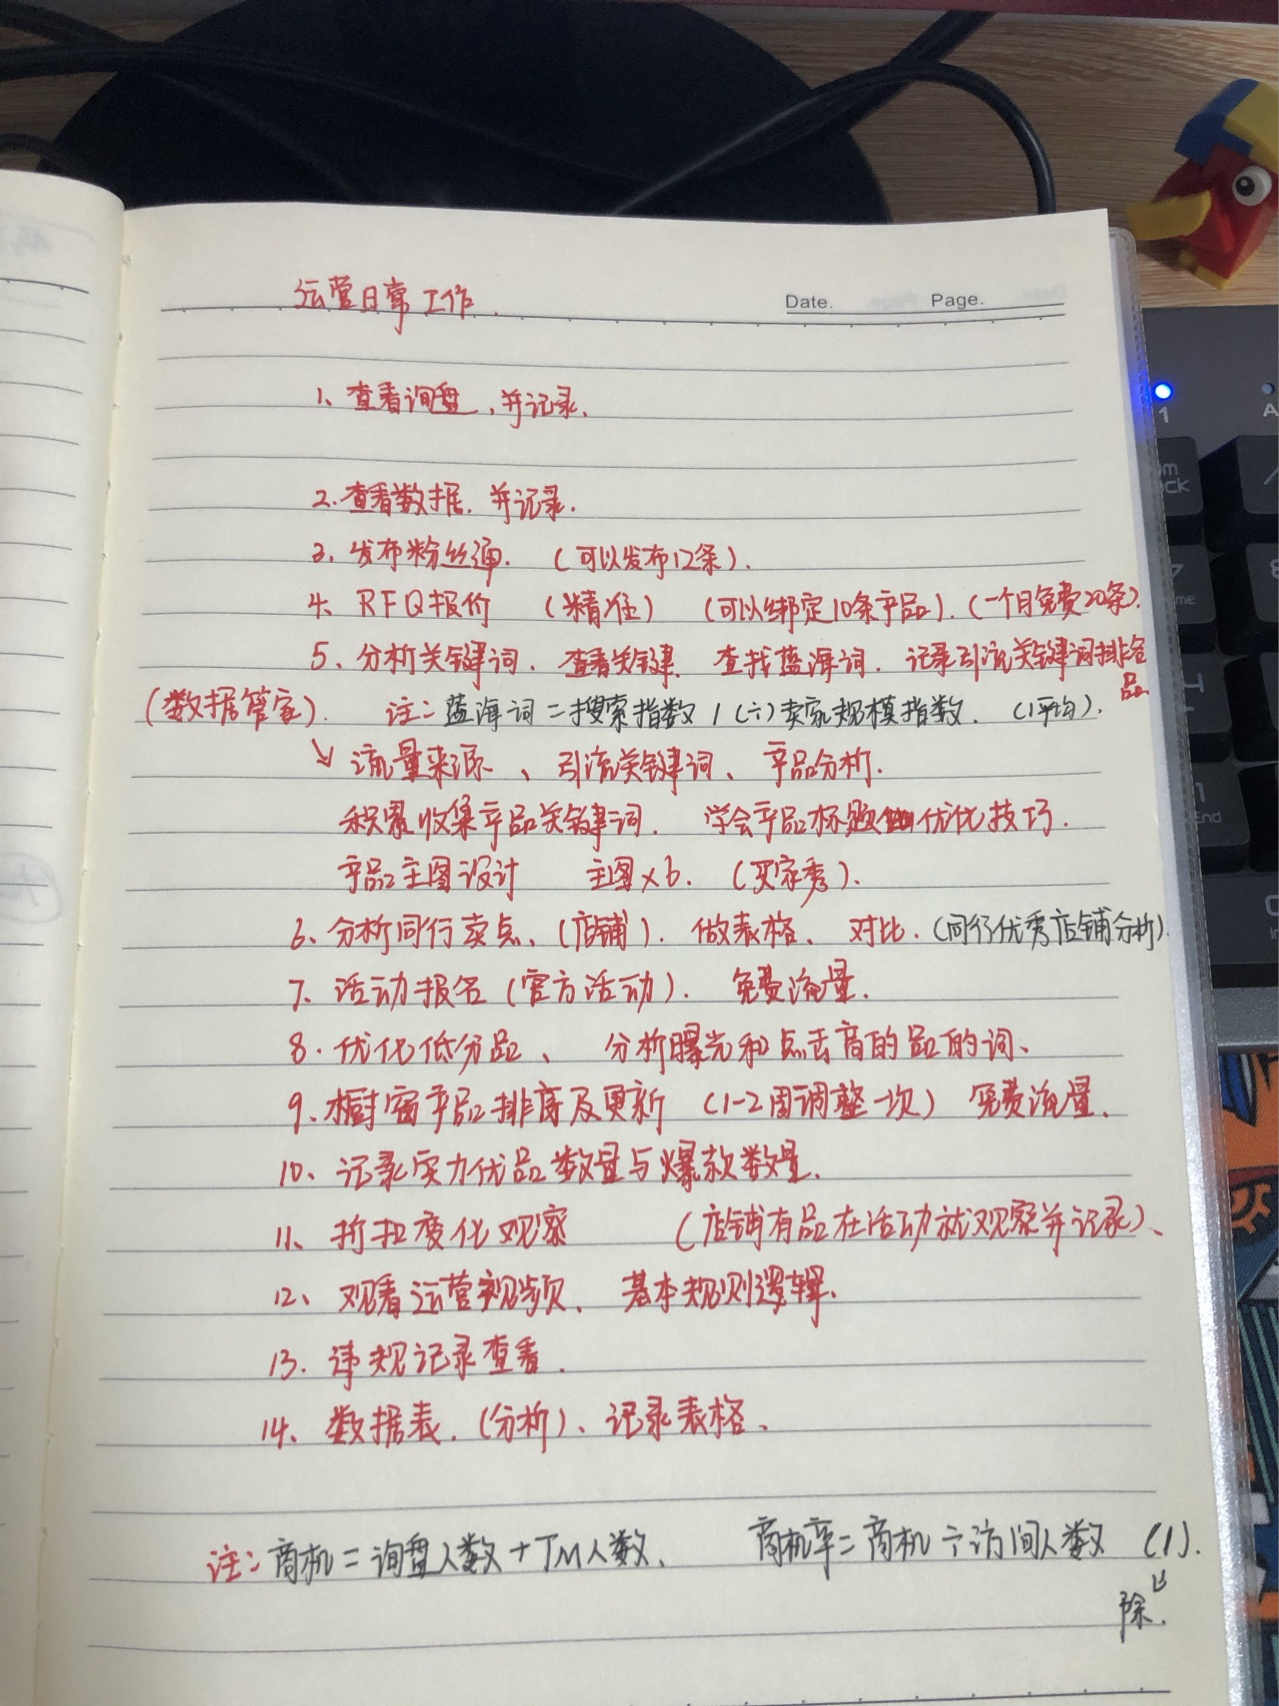 运营日常工作.
Date. Page.
1、查看询盘，并记录.
2.查看数据.并记录.
3.发布粉丝通.（可以发布12条）.
4. RFQ报价 （精准）（可以绑定10条产品）.（一个月免费20条）.
5、分析关键词.查看关键.查找蓝海词.记录引流关键词排名
品
（数据管家）. 注:蓝海词=搜索指数/（÷）卖家规模指数.（1平均）.
↘流量来源、引流关键词、产品分析.
积累收集产品关键词. 学会产品标题优化技巧.
产品主图设计 主图×6.（买家秀）.
6、分析同行卖点、（店铺）.做表格、对比.（同行优秀店铺分析）.
7、活动报名（官方活动）. 免费流量.
8.优化低分品、 分析曝光和点击高的品的词、
9、橱窗产品排序及更新（1-2周调整一次） 免费流量.
10、记录实力优品数量与爆款数量.
11、折扣变化观察 （店铺有品在活动就观察并记录）、
12、观看运营视频、基本规则逻辑.
13.违规记录查看.
14、数据表.（分析）、记录表格、
注:商机=询盘人数+TM人数. 商机率=商机÷访问人数（/）.
↓
除.
Num
Lock
1
A
7
Home
4
1
End
8
0